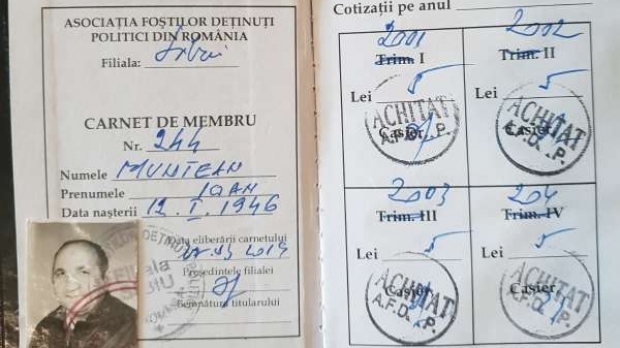 ASOCIAȚIA FOȘTILOR DEȚINUȚI
POLITICI DIN ROMÂNIA
Filiala: Sibiu
CARNET DE MEMBRU
Nr. 244
Numele MUNTEAN
Prenumele IOAN
Data nașterii 12. I. 1946
Data eliberării carnetului
Președintele filialei
Semnătura titularului
Cotizații pe anul
2001
Trim. I
Lei 5
ACHITAT
Casier
A.F.D.P.
2002
Trim. II
Lei 5
ACHITAT
Casier
A.F.D.P.
2003
Trim. III
Lei 5
ACHITAT
Casier
A.F.D.P.
204
Trim. IV
Lei 5
ACHITAT
Casier
A.F.D.P.